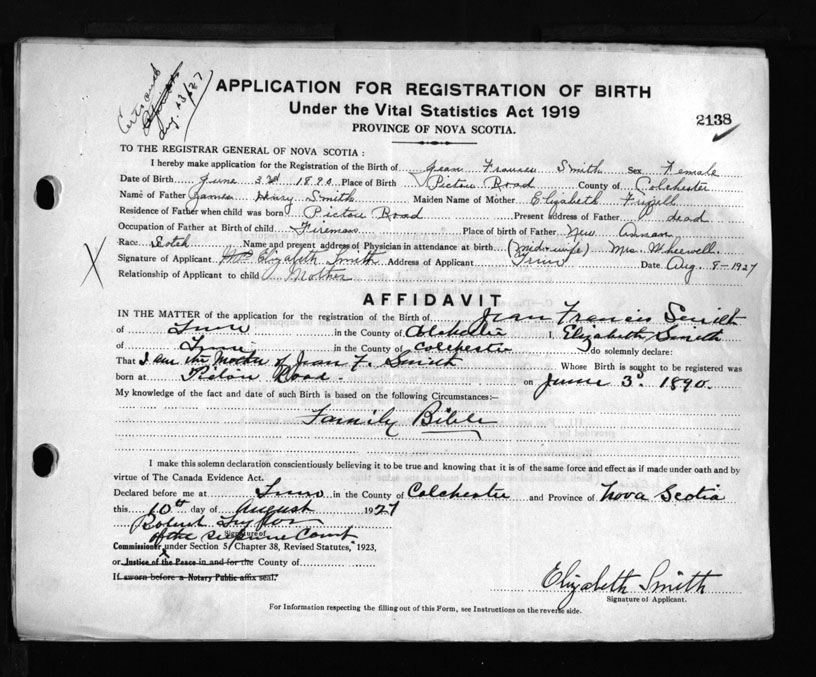 Aug. 13/27
APPLICATION FOR REGISTRATION OF BIRTH
Under the Vital Statistics Act 1919
2138
PROVINCE OF NOVA SCOTIA.
TO THE REGISTRAR GENERAL OF NOVA SCOTIA :
I hereby make application for the Registration of the Birth of Jean Frances Smith Sex Female
Date of Birth June 3rd 1890 Place of Birth Pictou Road County of Colchester
Name of Father James Henry Smith Maiden Name of Mother Elizabeth
Residence of Father when child was born Pictou Road Present address of Father dead
Occupation of Father at Birth of child Fireman Place of birth of Father New Annan
Race Scotch Name and present address of Physician in attendance at birth (midwife) Mrs.
Signature of Applicant Mrs Elizabeth Smith Address of Applicant Truro Date Aug. 8-1927
Relationship of Applicant to child Mother
AFFIDAVIT
IN THE MATTER of the application for the registration of the Birth of Jean Francis Smith
of Truro in the County of Colchester I, Elizabeth Smith
of Truro in the County of Colchester do solemnly declare:
That I am the Mother of Jean F. Smith Whose Birth is sought to be registered was
born at Pictou Road. on June 3d. 1890.
My knowledge of the fact and date of such Birth is based on the following Circumstances:—
Family Bible
I make this solemn declaration conscientiously believing it to be true and knowing that it is of the same force and effect as if made under oath and by
virtue of The Canada Evidence Act.
Declared before me at Truro in the County of Colchester and Province of Nova Scotia
this 10th day of August 1927
Robert
Signature of
of the Supreme Court
Commissioner under Section 5, Chapter 38, Revised Statutes, 1923,
or Justice of the Peace in and for the County of
If sworn before a Notary Public affix seal.
Elizabeth Smith
Signature of Applicant.
For Information respecting the filling out of this Form, see Instructions on the reverse side.